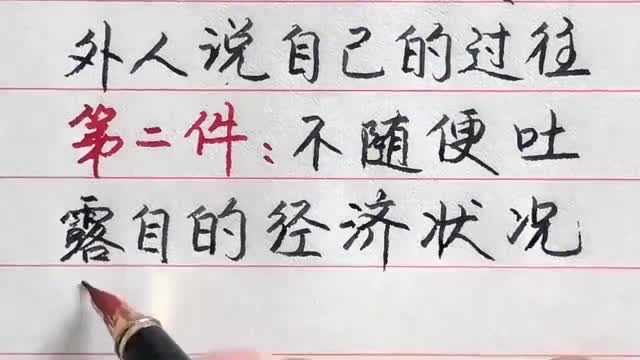 外人说自己的过往
第二件：不随便吐
露自的经济状况